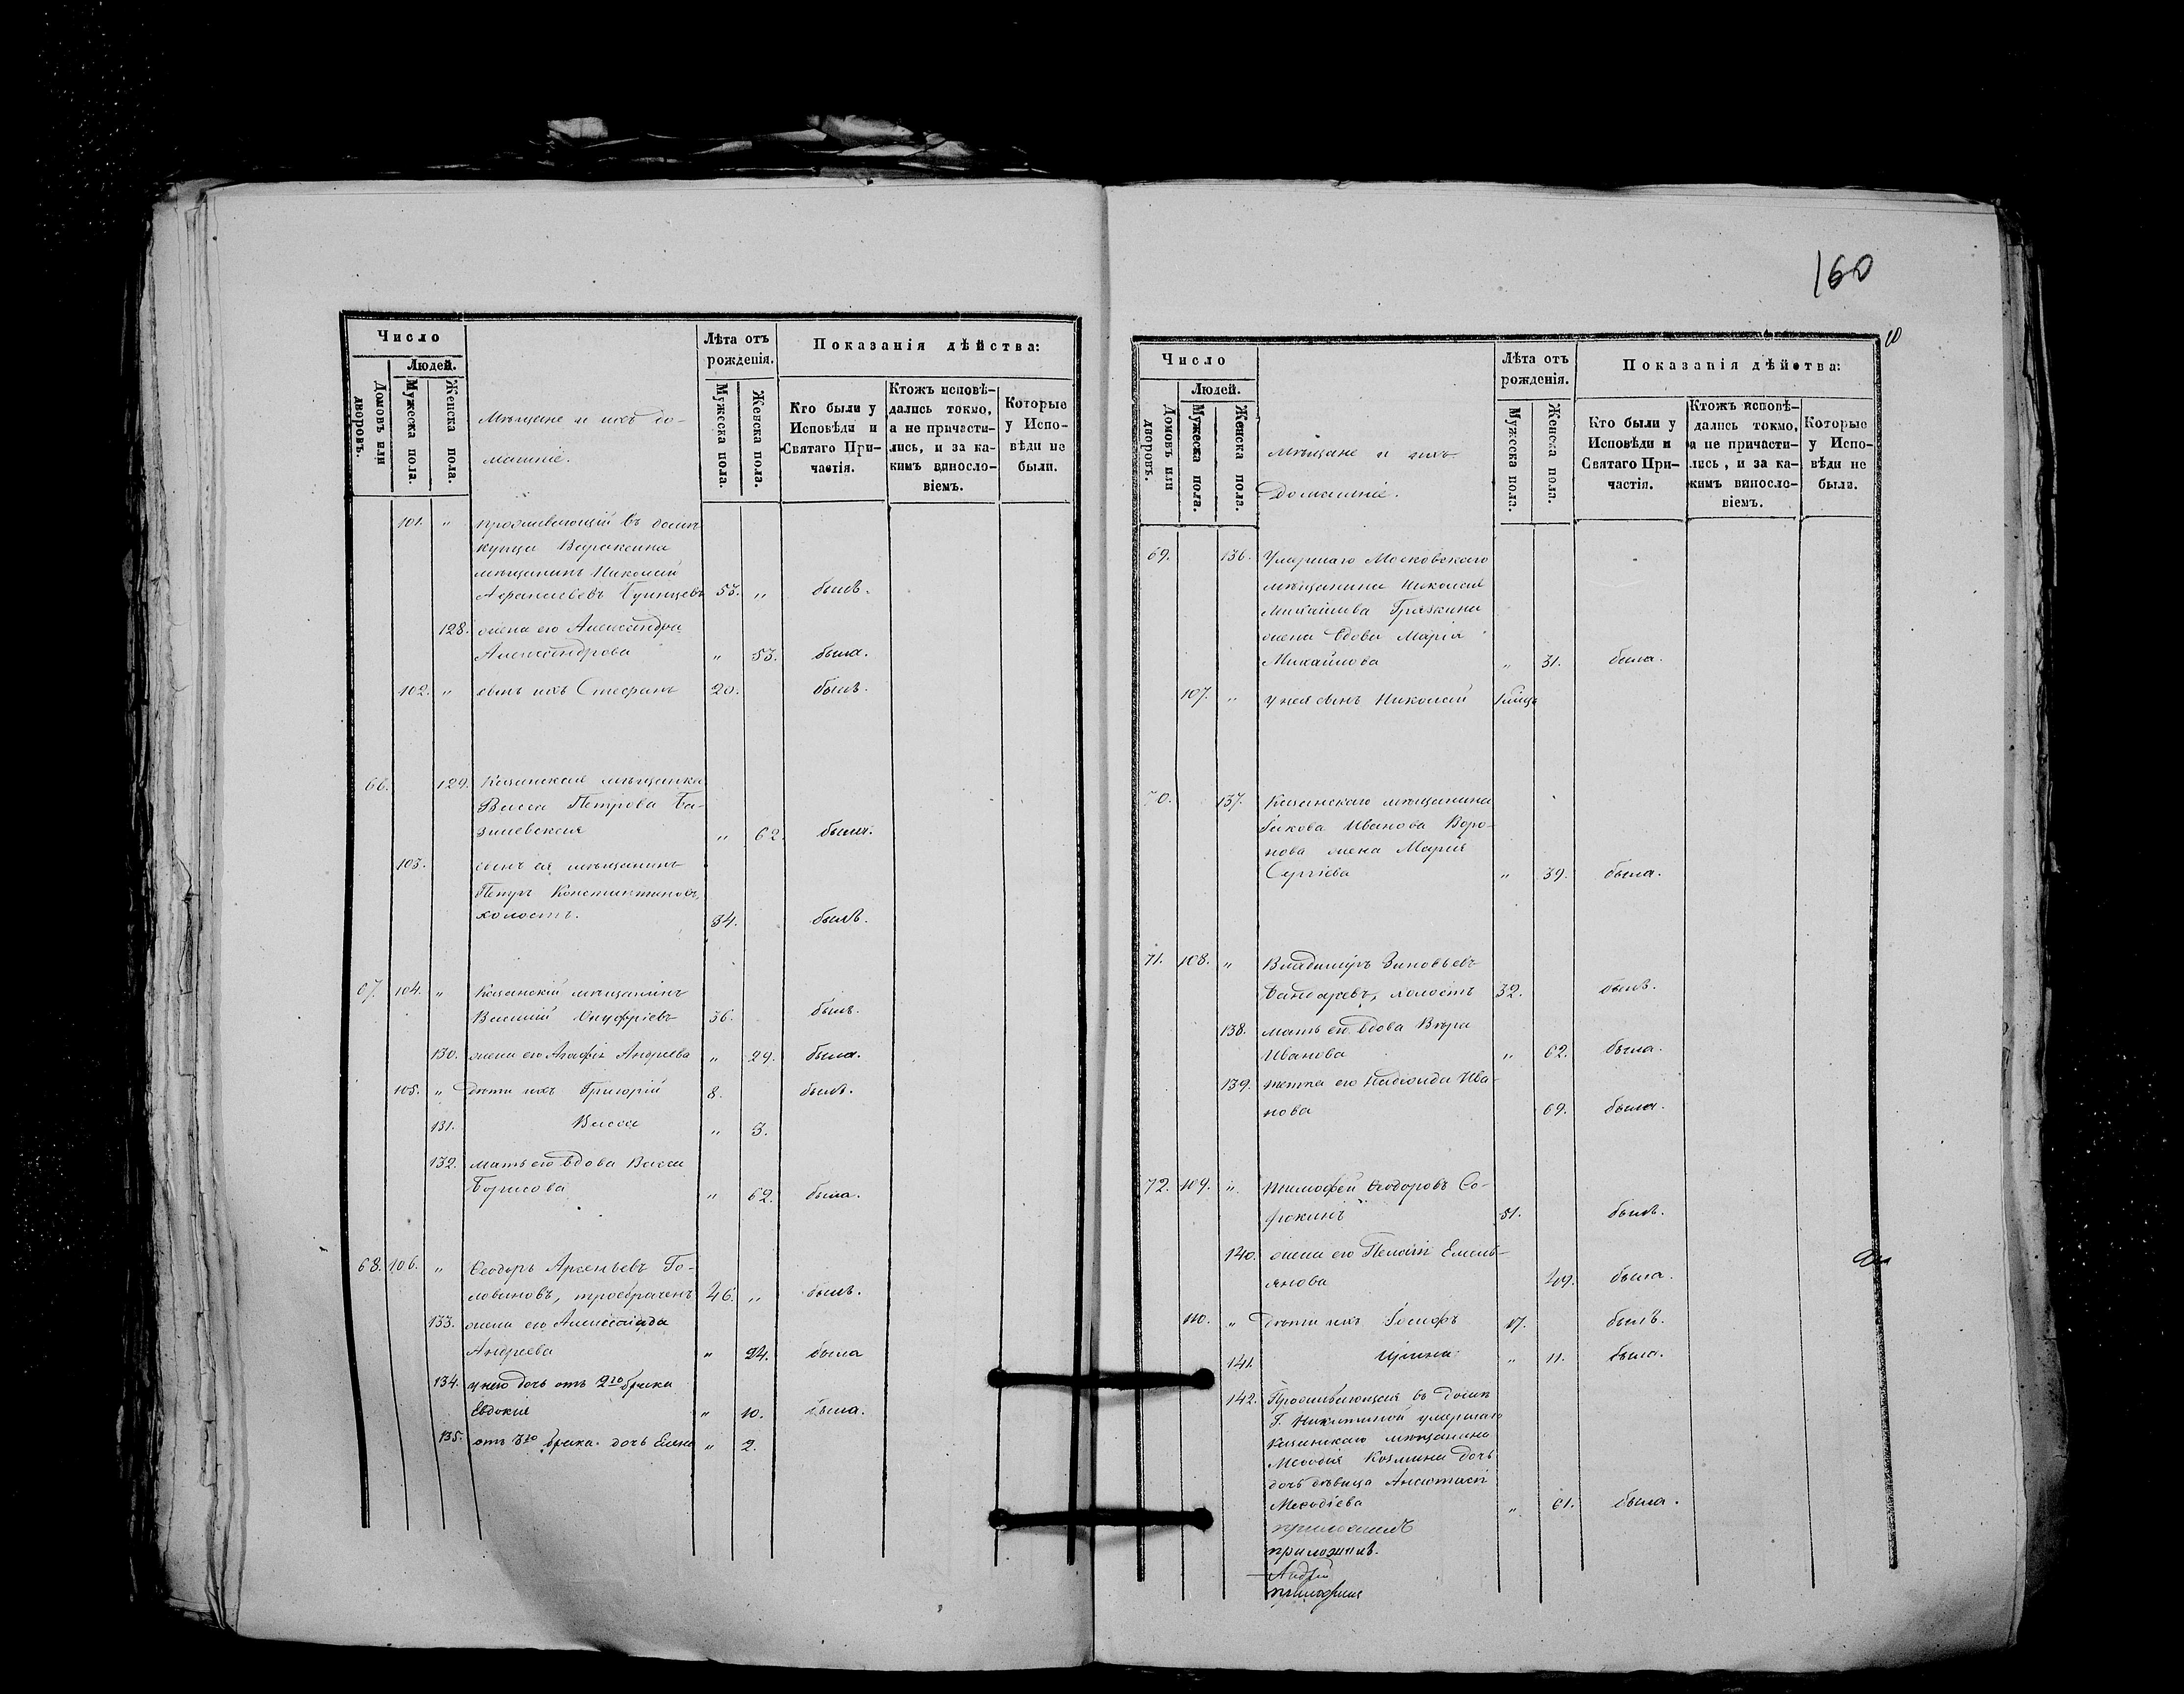 160
10
Число
Людей.
Домовъ или дворовъ.
Мужеска пола.
Женска пола.
Мещане и ихъ до-
машніе.
Лѣта отъ
рожденія.
Мужеска пола.
Женска пола.
Показанія дѣйства:
Кто были у
Исповѣди и
Святаго При-
частія.
Ктожъ исповѣ-
дались токмо,
а не причасти-
лись, и за ка-
кимъ винносло-
віемъ.
Которые
у Испо-
вѣди не
были.
101. " проживающій въ домѣ
купца Вараксина
мѣщанинъ Николай
Афанасьевъ 53. " былъ.
128. жена его Александра
Александрова " 53. была.
102. " сынъ ихъ Стефанъ 20. былъ.
66. 129. Казанская мѣщанка
Васса Петрова Ба-
зилевская " 62. была.
103. сынъ ея мѣщанинъ
Петръ Константиновъ,
холостъ. 34. былъ.
67. 104. " Казанскій мѣщанинъ
Василій Онуфріевъ 36. былъ.
130. жена его Агафія Андреева " 29. была.
105. " дѣти ихъ Григорій 8. былъ.
131. Васса " 3.
132. мать его вдова Васса
Борисова " 62. была.
68. 106. " Ѳеодоръ Арсеньевъ Го-
ловановъ, троебраченъ 46. " былъ.
133. жена его Александра
Андреева " 24. была
134. у него дочь отъ 2го брака
Евдокія " 10. была.
135. отъ 3го брака дочь Елена " 2.
Число
Людей.
Домовъ или дворовъ.
Мужеска пола.
Женска пола.
Мѣщане и ихъ
домашніе.
Лѣта отъ
рожденія.
Мужеска пола.
Женска пола.
Показанія дѣйства:
Кто были у
Исповѣди и
Святаго При-
частія.
Ктожъ исповѣ-
дались токмо,
а не причасти-
лись, и за ка-
кимъ винносло-
віемъ.
Которые
у Испо-
вѣди не
были.
69. 136. Умершаго Московскаго
мѣщанина Николая
Михайлова Грязкина
жена вдова Марія
Михайлова " 31. была.
107. " у нея сынъ Николай
70. 137. Казанскаго мѣщанина
Іакова Иванова Воро-
нова жена Марія
Сергіева " 39. была.
71. 108. " Владиміръ Зиновьевъ
холостъ 32. былъ.
138. мать его вдова Вѣра
Иванова " 62. была.
139. тетка его Надежда Ива-
нова 69. была.
72. 109. " Тимофей Ѳеодоровъ Со-
рокинъ 51. былъ.
140. жена его Пелагія Емель-
янова 49. была.
110. " дѣти ихъ Іосифъ 17. былъ.
141. Ирина " 11. была.
142. Проживающая въ домѣ
Г. Никитиной умершаго
казанскаго мѣщанина
Меѳодія Козмина дочь
дочь дѣвица Анастасія
Меѳодіева " 61. была.
приложилъ
приложилъ.
Андрей